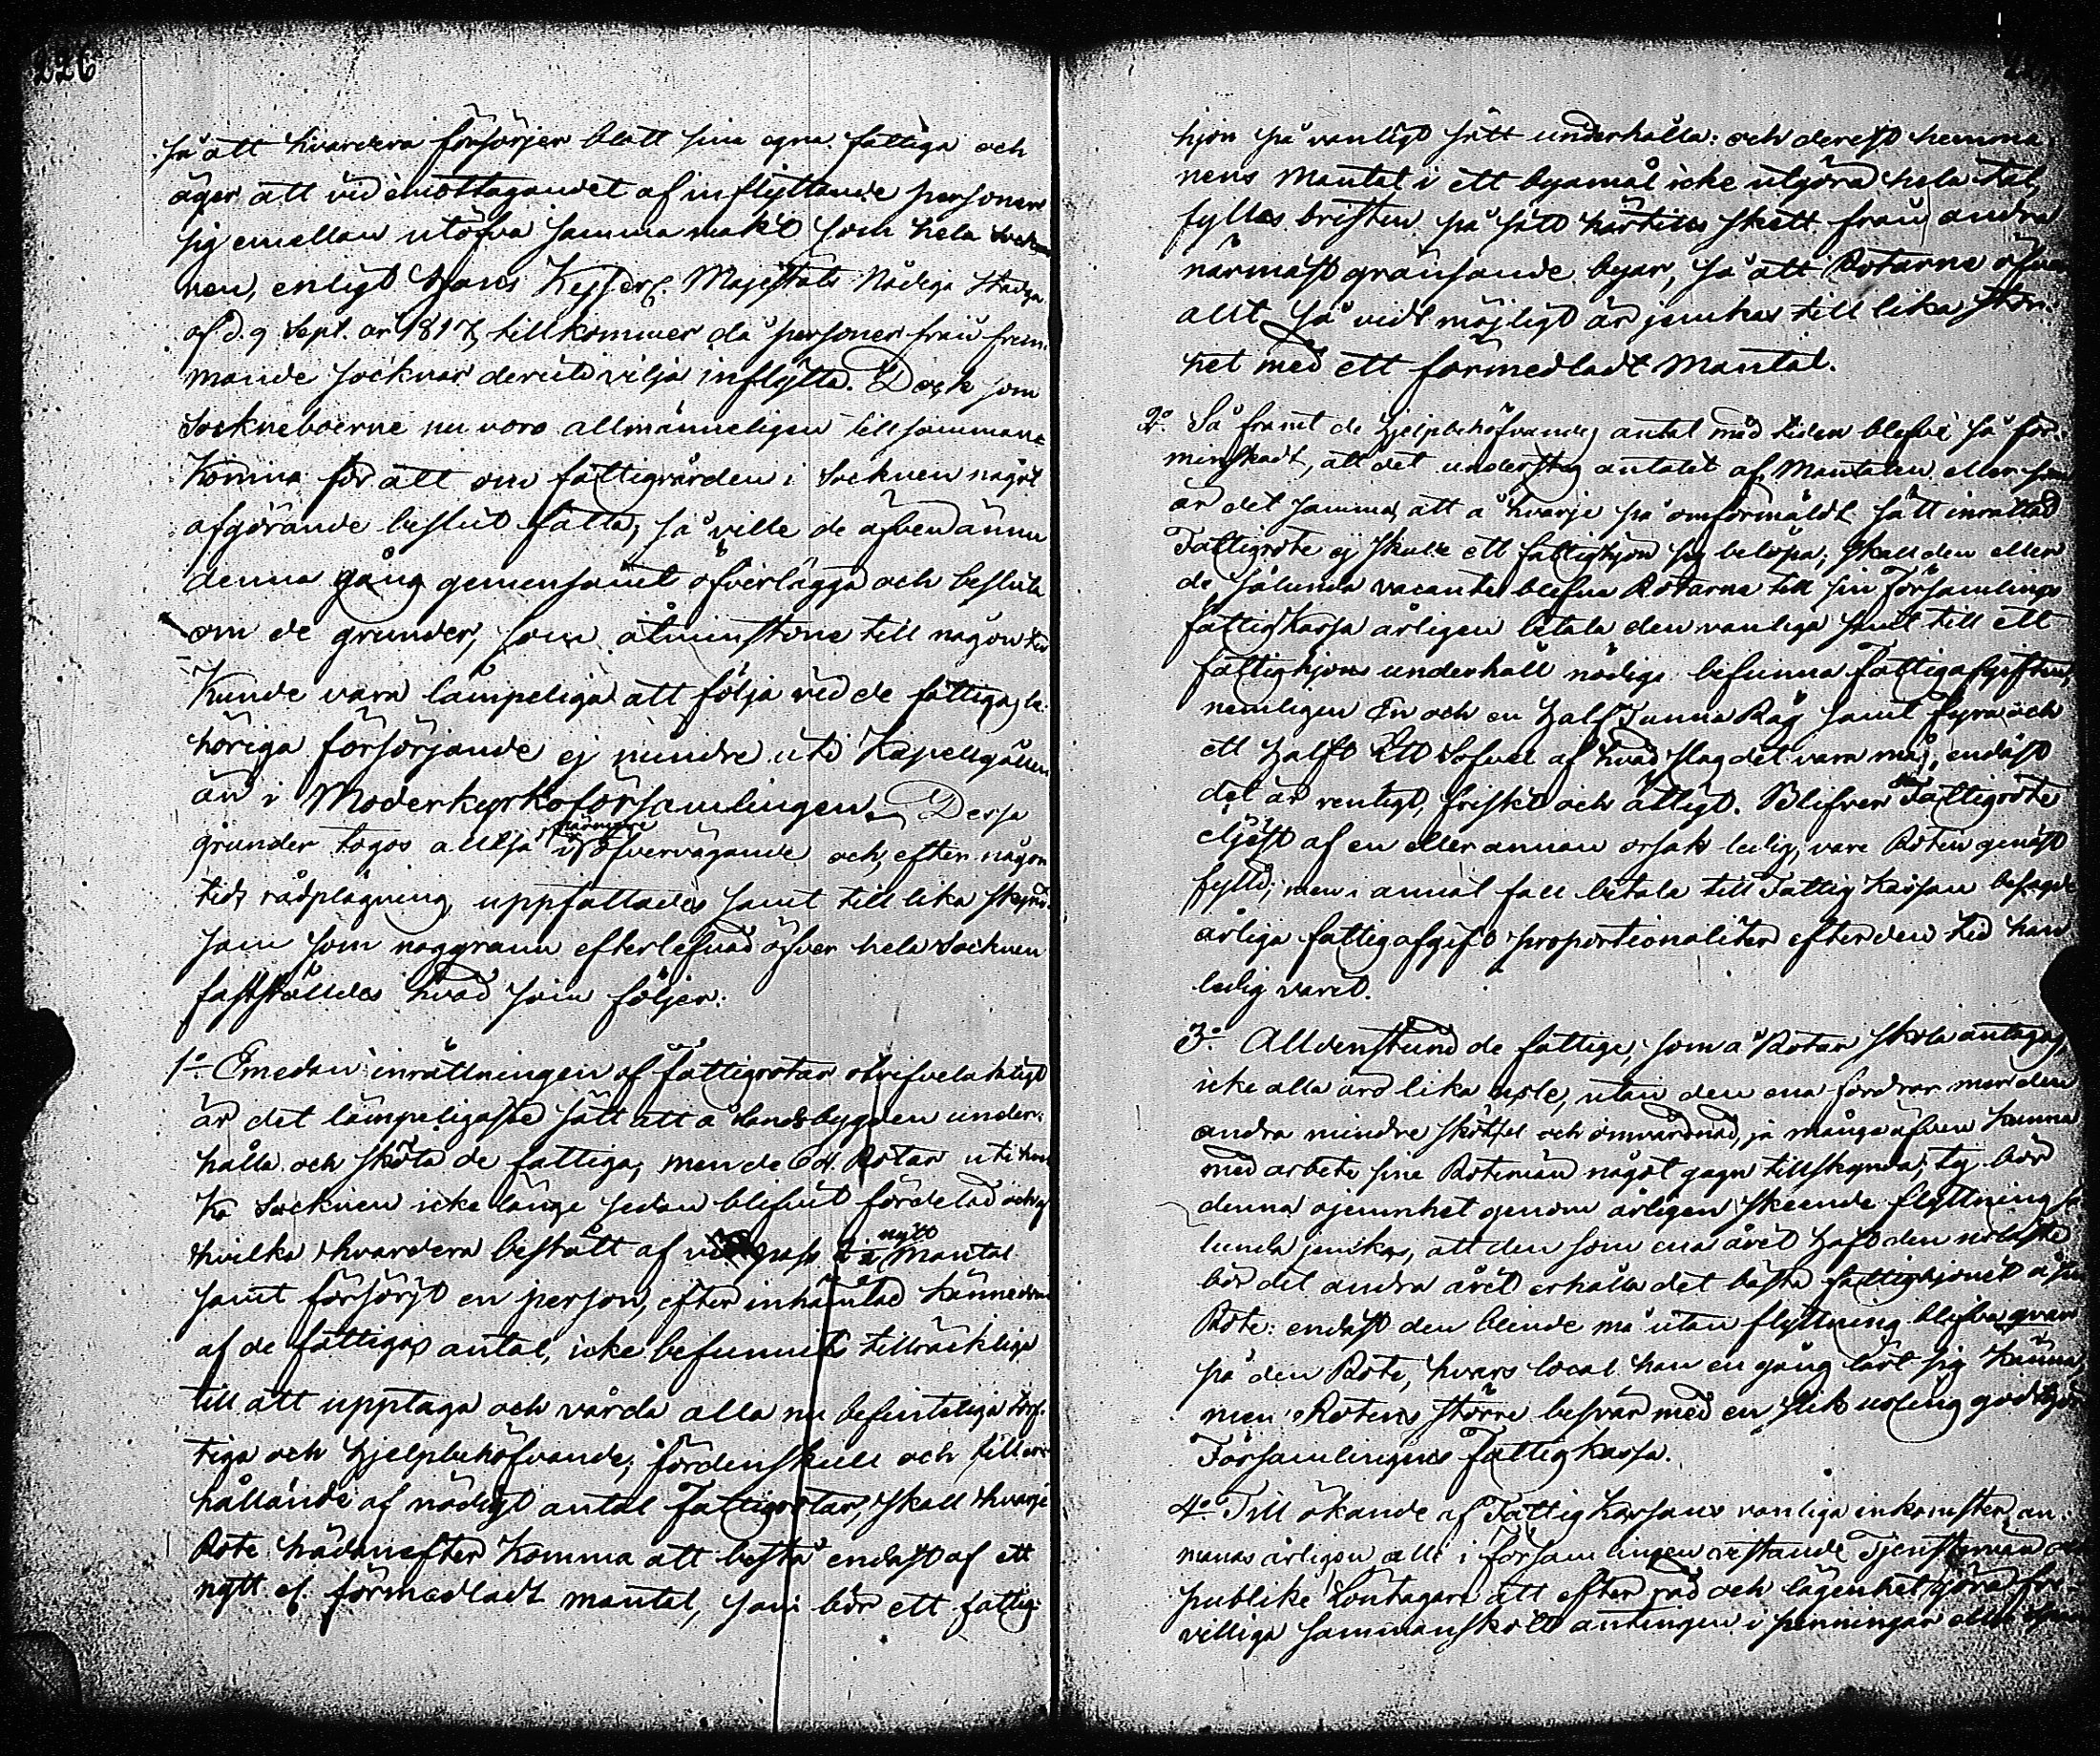 226
så att hvardera försörjer blott sina egna fattiga och
äger att vid emottagandet af inflyttande personer
sig emellan utöfva samma makt som hela Sock
nen, enligt Hans Kejserl. Majestäts Nådiga Stadga
af d. 9 Sept. år 1817, tillkommer då personer från frem-
mande socknar deruti vilja inflytta. Dock som
Sockneboerne nu voro allmänneligen tillsamman-
komna för att om fattigvården i Socknen något
afgörande beslut fatta, så ville de äfven ännu
denna gång gemensamt öfverlägga och besluta
om de grunder, som åtminstone till någon tid
kunde vara lämpeliga att följa vid de fattigas be-
höriga försörjande ej mindre uti Kapellgällen
än i Moderkyrkoförsamlingen. Dessa
grunder togos alltså i närmare öfvervägande och, efter någon
tids rådplägning, uppfattades samt till lika
som noggrann efterlefnad öfver hela Socknen
fastställdes hvad som följer:
1º Emedan inrättningen af fattigrotar otvifvelaktigt
är det lämpeligaste sätt att å Landsbygden under-
hålla och sköta de fattiga, men de 64 Rotar uti hvil
ka Socknen icke länge sedan blifvit fördelad och af
hvilka hvardera bestått af nytt Mantal
samt försörjt en person, efter inhämtad kännedom
af de fattigas antal, icke befunnits tillräcklige
till att upptaga och vårda alla nu befinteliga torf-
tiga och hjelpbehöfvande; fördenskull och till er-
hållande af nödigt antal Fattigrotar, skall hvarje
Rote hädanefter komma att bestå endast af ett
nytt el. förmedladt mantal, som bör ett fattig-
hjon på vanligt sätt underhålla: och derest hemma-
nens Mantal i ett byamål icke utgöra hela tal,
fylles bristen på sätt härtills skett från andra
närmast gränsande byar, så att Rotarne öfver
allt så vidt möjligt är jemkas till lika stor-
het med ett förmedladt Mantal.
2º Så framt de hjelpbehöfvandes antal med tiden blefve så för-
minskadt, att det understeg antalet af Mantalen eller som
är det samma, att å hvarje på omförmäldt sätt inrättad
Fattigrote ej skulle ett fattighjon sig belöpa, skall den eller
de sålunda vacante blefne Rotarne till sin Församlings
fattigkassa årligen betala den vanliga samt till ett
fattighjons underhåll nödige befunna Fattigafgiften,
nemligen En och en half Tunna Råg samt fyra och
ett halft L℔ Sofvel af hvad slag det vara må, endast
det är renligt, friskt och ätligt. Blifver Fattigrote
eljest af en eller annan orsak ledig, vare Roten genast
fylld; men i annat fall betale till Fattig Kassan besagde
årliga fattigafgift proportionaliter efter den tid han
ledig varit.
3º Alldenstund de fattige, som å Rotar skola antagas,
icke alla äro lika usle, utan den ena fordrar mer den
andra mindre skötsel och omvårdnad, ja många äfven kunna
med arbete sine Rotemän något gagn tillskynda; ty bör
denna ojemnhet genom årligen skeende flyttning så
lunda jemkas, att den som ena året haft den uslaste
bör det andra året erhålla det bästa fattighjonet å sin
Rote: endast den blinde må utan flyttning blifva qvar
på den Rote, hvars local han en gång lärt sig känna,
men Rotens större besvär med en slik usling godtgör
Församlingens Fattigkassa.
4º Till ökande af Fattig Kassans vanliga inkomster, an-
manas årligen alle i församlingen vistande Tjenstemän och
publike Löntagare att efter råd och lägenhet göra fri-
villiga sammanskott antingen i penningar eller